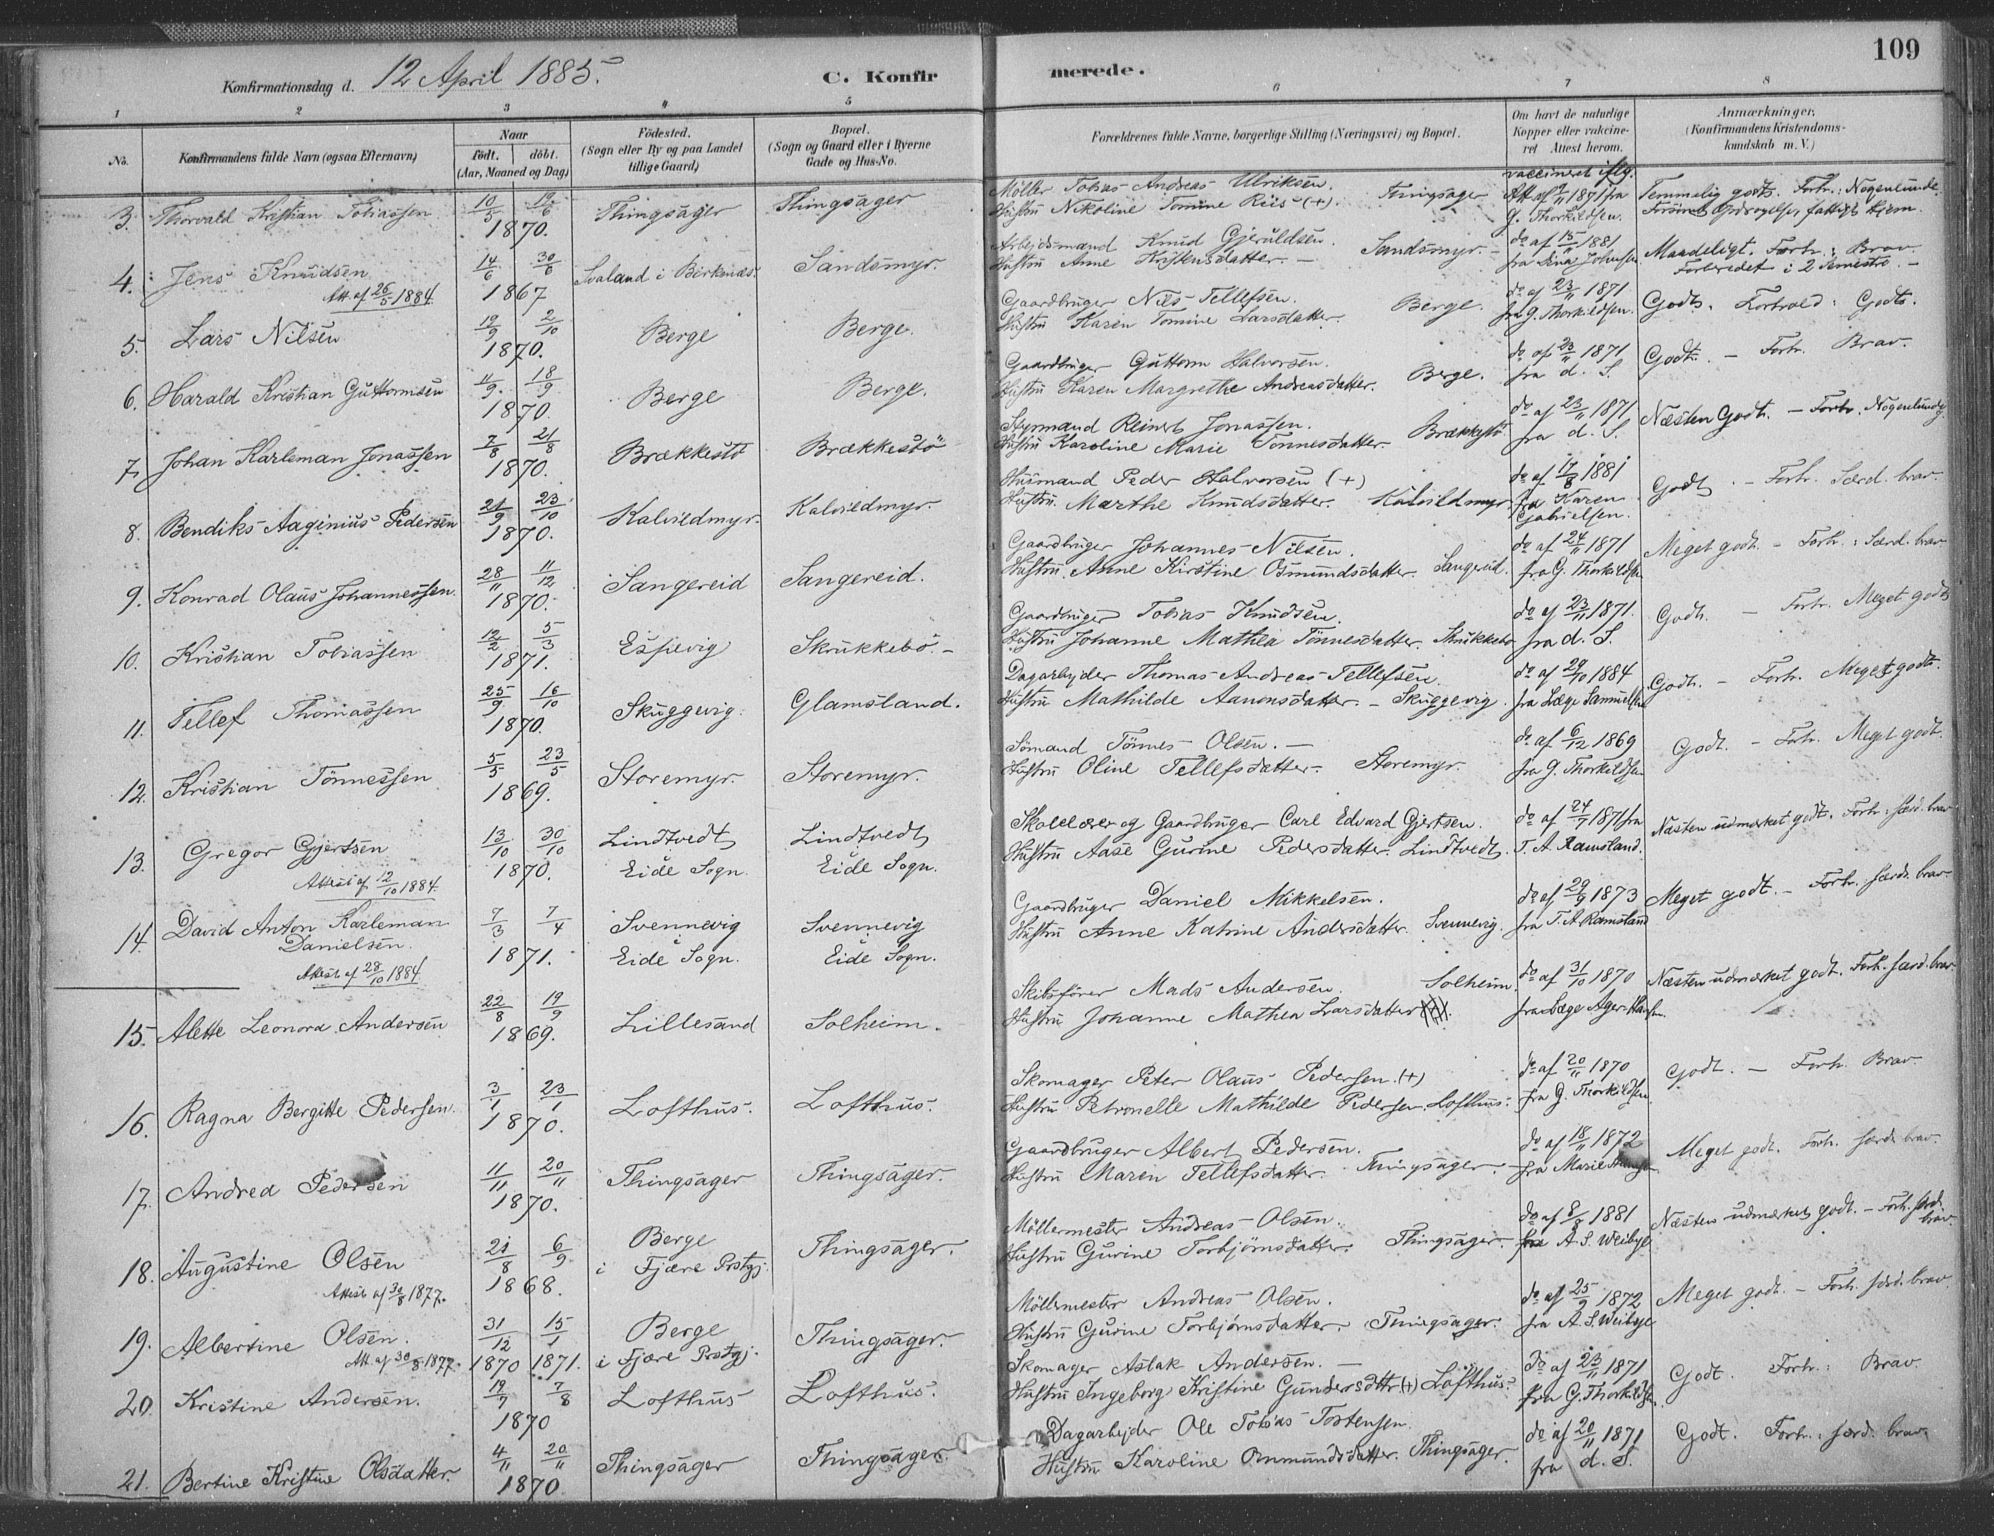 109
Konfirmationsdag d. 12 April 1885. C. Konfirmerede.
1 2 3 4 5 6 7 8
No. Konfirmandens fulde Navn (ogsaa Efternavn) Naar født. døbt. (Aar, Maaned og Dag) Fødested. (Sogn eller By og paa Landet tillige Gaard) Bopæl. (Sogn og Gaard eller i Byerne Gade og Hus-No. Forældrenes fulde Navne, borgerlige Stilling (Næringsvei) og Bopæl. Om havt de naturlige Kopper eller vakcineret Attest herom. Anmærkninger. (Konfirmandens Kristendomskundskab m. V.)
3. Thorvald Kristian Tobiassen 10/5 19/6 1870. Thingsager Thingsager Møller Tobias Andreas Ulriksen. Hustru Nikoline Tomine Riis (+) Tingsager vaccineret iflg. Att. af 9/11 1871 fra G. Thorkildsen. Temmelig godt. Forh.: Nogenlunde.
4. Jens Knudsen Att. af 26/5 1884. 14/6 30/6 1867 Svaland i Birkenæs Sandsmyr. Arbejdsmand Knud Gjeruldsen. Hustru Anne Kristensdatter. Sandsmyr. do af 15/11 1881 fra Lina Johnsen Maadeligt. Forh.: Brav. Forberedet i 2 Semestre.
5. Lars Nilsen 19/9 2/10 1870. Berge Berge. Gaardbruger Nils Tellefsen. Hustru Karen Tomine Larsdatter. Berge. do af 23/11 1871 fra G. Thorkildsen. Godt. Forhold: Godt.
6. Harald Kristian Guttormsen 11/9 18/9 1870. Berge Berge. Gaardbruger Guttorm Halvorsen. Hustru Karen Margrethe Andreasdatter. Berge. do af 23/11 1871 fra d. S. Godt. – Forh. Brav.
7. Johan Karleman Jonassen 7/8 21/8 1870. Brækkestø Brækkestø Styrmand Reinert Jonassen. Hustru Karoline Marie Tønnesdatter. Brækkestø do af 23/11 1871 fra d. S. Næsten Godt. – Forh. Nogenlunde
8. Bendiks Aaginius Pedersen 21/9 23/10 1870. Kalvildmyr. Kalvildmyr. Husmand Peder Halvorsen (+) Hustru Marthe Knudsdatter. Kalvildmyr do af 17/8 1881 fra Karen Gabrielsen. Godt – Forh. Særd. brav.
9. Konrad Olaus Johannessen. 28/11 11/12 1870. Sangereid Sangereid. Gaardbruger Johannes Nilsen. Hustru Anne Kirstine Osmundsdatter. Sangereid. do af 24/11 1871 fra G. Thorkildsen Meget godt. – Forh.: Særd. brav
10. Kristian Tobiassen 12/2 5/3 1871. Espevig Skrukkebø. – Gaardbruger Tobias Knudsen. Hustru Johanne Mathea Tønnesdatter. Skrukkebø do af 23/11 1871. fra d. S. Godt. – Forh. Meget godt
11. Tellef Thomassen 25/9 16/10 1870. Skuggevig. Glamsland. Dagarbejder Thomas Andreas Tellefsen. Hustru Mathilde Aanonsdatter. – Skuggevig. do af 29/10 1884 fra Læge Samuelsen Godt. – Forh. Meget godt.
12. Kristian Tønnessen 5/5 23/5 1869. Storemyr. Storemyr. Sømand Tønnes Olsen. – Hustru Oline Tellefsdatter. Storemyr. do af 6/12 1869 fra G. Thorkildsen Godt. – Forh. Meget godt.
13. Gregor Gjertsen Attest af 12/10 1884. 13/10 30/10 1870. Lindtvedt Eide Sogn. Lindtvedt Eide Sogn. Skolelærer og Gaardbruger Carl Edvard Gjertsen. Hustru Aase Gurine Pedersdatter. Lindtvedt. do af 24/7 1871 fra T. A. Ramsland. Næsten udmærket godt. Forh.: særd. brav
14. David Anton Karleman Danielsen. Attest af 28/10 1884. 7/3 7/4 1871. Svennevig i Eide Sogn. Svennevig i Eide Sogn. Gaardbruger Daniel Mikkelsen. Hustru Anne Katrine Andersdatter. Svennevig. do af 29/9 1873 fra T. A. Ramsland Meget godt. – Forh. særd. brav.
15. Alette Leonora Andersen 22/8 19/9 1869. Lillesand Solheim. Skibsfører Mads Andersen. Hustru Johanne Mathea Larsdatter Solheim. do af 31/10 1870 fra Læge Ager-Hansen. Næsten udmærket godt. Forh. særd. brav.
16. Ragna Bergitte Pedersen. 3/1 23/1 1870. Lofthus. Lofthus. Skomager Peter Olaus Pedersen. (+) Hustru Petronelle Mathilde Pedersen. Lofthus. do af 20/11 1870 fra G. Thorkildsen. Godt. – Forh. Brav.
17. Andrea Pedersen 11/11 20/11 1870. Thingsager Thingsager. Gaardbruger Albert Pedersen. Hustru Maren Tellefsdatter. Thingsager. do af 18/11 1872 fra Marie Meget godt. Forh. særd. brav.
18. Augustine Olsen Attest af 30/8 1877. 21/8 6/9 1868. Berge i Fjære Prstgj. Thingsager. Møllermester Andreas Olsen. Hustru Gurine Torbjørnsdatter. Thingsager. do af 8/8 1881 fra A. S. Weibye Næsten udmærket godt. – Forh. særd. brav.
19. Albertine Olsen. Att. af 30/8 1877. 31/12 1870 15/1 1871. Berge i Fjære Prstgj. Thingsager. Møllermester Andreas Olsen. Hustru Gurine Torbjørnsdatter. Thingsager. do af 25/9 1872 fra A. S. Weibye Meget godt. – Forh. særd. brav.
20. Kristine Andersen. 19/7 7/8 1870 Lofthus Lofthus. Skomager Aslak Andersen. – Hustru Ingeborg Kristine Gundersdttr. (+) Lofthus. do af 23/11 1871 fra G. Thorkildsen Godt. Forh.: Brav.
21. Bertine Kristine Olsdatter. 4/11 20/11 1870. Thingsager Thingsager. Dagarbejder Ole Tobias Tostensen. Hustru Karoline Osmundsdatter. Thingsager. do af 20/11 1871 fra d. S. Godt. Forh.: særd. brav.